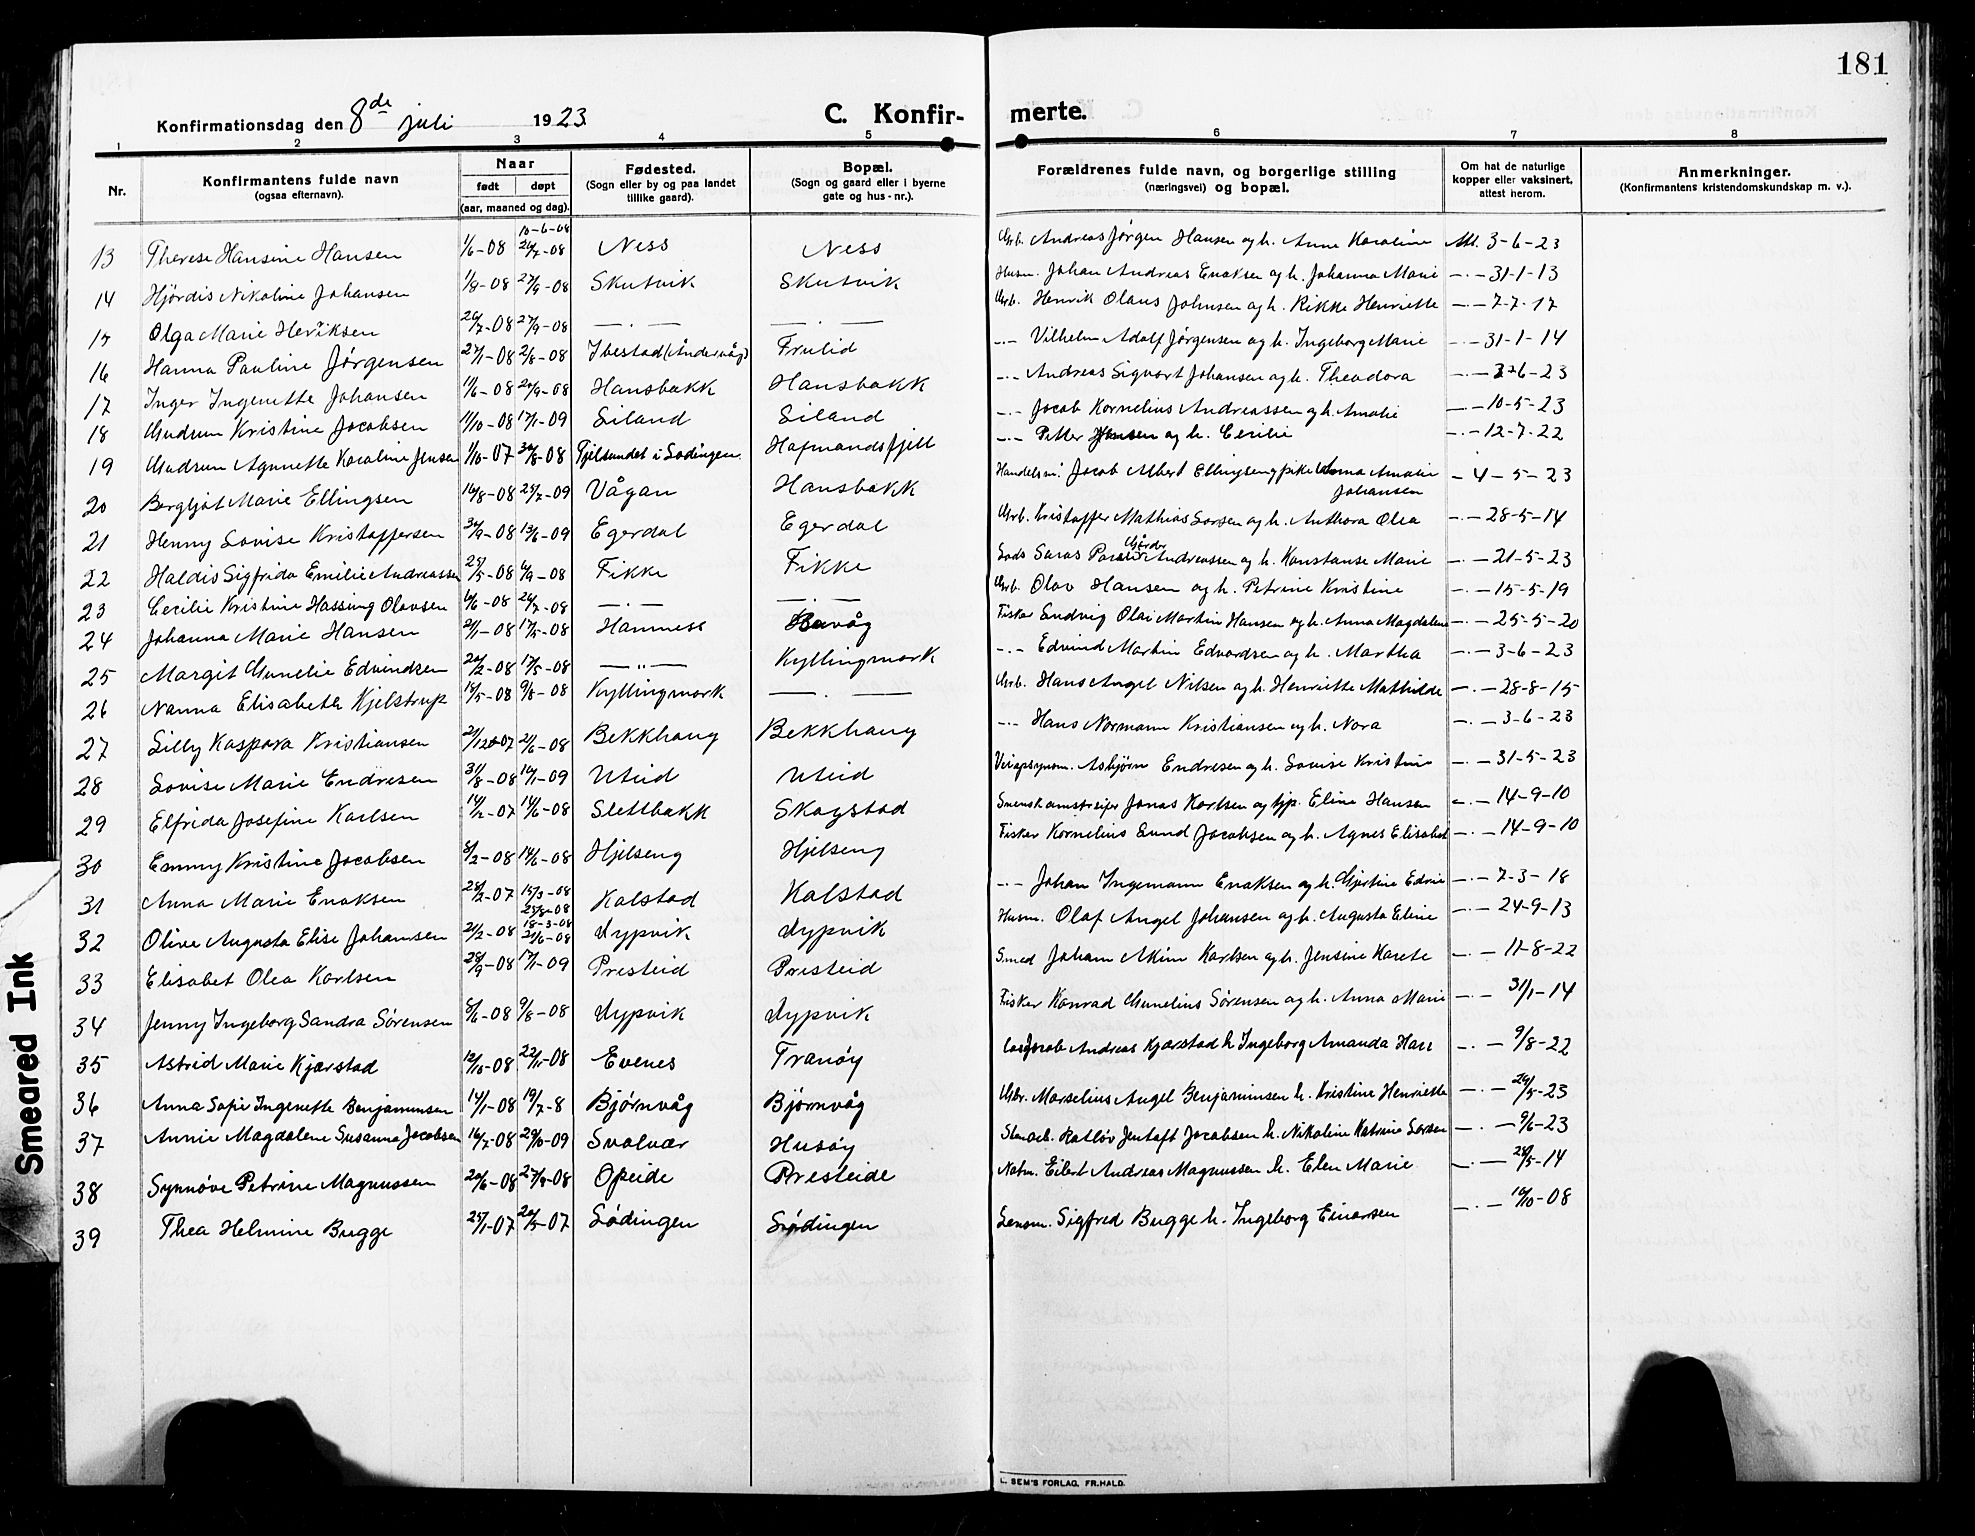 181
Konfirmationsdag den 8de juli 1923
C. Konfirmerte.
1 2 3 4 5 6 7 8
Nr.
Konfirmantens fulde navn
(ogsaa efternavn).
Naar
født døpt
(aar, maaned og dag).
Fødested.
(Sogn eller by og paa landet
tillike gaard).
Bopæl.
(Sogn og gaard eller i byerne
gate og hus-nr.).
Forældrenes fulde navn, og borgerlige stilling
(næringsvei) og bopæl.
Om hat de naturlige
kopper eller vaksinert,
attest herom.
Anmerkninger.
(Konfirmantens kristendomskundskap m. v.).
10-6-08
13 Therese Hansine Hansen 1/6-08 26/7-08 Ness Ness Grb. Andreas Jørgen Hansen og h. Anne Karoline Att. 3-6-23
14 Hjørdis Nikoline Johansen 1/9-08 27/9-08 Skutvik Skutvik Husm. Johan Andreas Enoksen og h. Johanna Marie -.- 31-1-13
15 Olga Marie Heriksen 26/7-08 27/9-08 -.- -.- Grb. Henrik Olaus Johnsen og h. Rikke Henriette -.- 7-7-17
16 Hanna Pauline Jørgensen 27/1-08 2/8-08 Ibestad (Åndervåg) Frulid -.- Vilhelm Adolf Jørgensen og h. Ingeborg Marie -.- 31-1-14
17 Inger Ingenette Johansen 11/6-08 27/9-08 Hansbakk Hansbakk -.- Andreas Sigvart Johansen og h. Theodora -.- 6-23
18 Gudrun Kristine Jacobsen 11/10-08 17/1-09 Siland Siland -.- Jacob Kornelius Andreassen og h. Amalie -.- 10-5-23
19 Gudrun Agnette Karoline Jensen 1/10-07 30/8-08 Fjelsundet i Lødingen. Hafmandsfjell -.- Petter Jensen og h. Cecilie -.- 12-7-22
20 Bergljot Marie Ellingsen 16/8-08 25/7-09 Vågan Hansbakk Handelsm. Jacob Albert Ellingsen og pike Anna Amalie Johansen - 4-5-23
21 Henny Lovise Kristoffersen 30/9-08 13/6-09 Egerdal Egerdal Grb. Kristoffer Mathias Larsen og h. Anthora Olea -.- 28-5-14
22 Haldis Sigfrida Emilie Andreassen 25/5-08 6/9-08 Fikke Fikke Andreassen og h. Konstanse Marie -.- 21-5-23
23 Cecilie Kristine Hassing Olavsen 6/6-08 26/7-08 -.- -.- Grb. Olav Hansen og h. Petrine Kristine -.- 15-5-19
24 Johanna Marie Hansen 21/1-08 17/5-08 Hamnes Fisker Ludvig Olai Martin Hansen og h. Anna Magdalene -.- 25-5-20
25 Margit Gunelie Edvindsen 20/2-08 17/5-08 -..- Kyllingmark -.- Edvind Martin Edvardsen og h. Martha -.- 3-6-23
26 Nanna Elisabeth Kjelstrup 15/5-08 9/8-08 Kyllingmark -.- Grb. Hans Angel Nilsen og h. Henriette Mathilde -.- 28-8-15
27 Lilly Kaspara Kristiansen 21/12-07 21/6-08 Bekkhaug Bekkhaug -.- Hans Normann Kristiansen og h. Nora -.- 3-6-23
28 Lovise Marie Endresen 31/8-08 10/1-09 Uteid Uteid Asbjørn Endresen og h. Lovise Kristine -.- 31-5-23
29 Elfrida Josefine Karlsen 14/2-07 14/6-08 Slettbakk Skogstad Svensk omstreifer Jonas Karlsen og hjp. Eline Hansen -.- 14-9-10
30 Emmy Kristine Jacobsen 8/2-08 14/6-08 Hjelseng Hjelseng Fisker Kornelius Lund Jacobsen og h. Agnes Elisabet -.- 14-9-10
31 Anna Marie Enoksen 28/2-07 15/3-08 Kalstad Kalstad -.- Johan Ingemann Enoksen og h. Gjertine Edvine -.- 7-3-18
23/8-08
18-3-08
32 Olive Augusta Elise Johansen 21/2-08 21/6-08 Dypvik Dypvik Husm. Olaf Angel Johansen og h. Augusta Eline -.- 24-9-13
33 Elisabet Olea Karlsen 28/9-08 17/1-09 Presteid Presteid Smed Johan Akim Karlsen og h. Jensine Karete -.- 11-8-22
34 Jenny Ingeborg Sandra Sørensen 8/6-08 9/8-08 Dypvik Dypvik Fisker Konrad Gunelius Sørensen og h. Anna Marie -.- 31/1-14
35 Astrid Marie Kjærstad 12/10-08 22/11-08 Evenes Tranøy Jacob Andreas Kjærstad h. Ingeborg Amanda Han -.- 9/8-22
36 Anna Sofie Ingenette Benjaminsen 14/1-08 19/7-8 Bjørnvåg Bjørnvåg Gbr. Marselius Angel Benjaminsen h. Kristine Henriette -.- 26/5-23
37 Annie Magdalene Susanna Jacobsen 16/7-08 29/10-09 Svolvær Husøy Ratløv Jentoft Jacobsen h. Nikoline Katrine Larsen -.- 9/6-23
38 Synnøve Petrine Magnussen 20/6-08 27/9-08 Opeide Presteide Notm. Eilert Andreas Magnussen h. Elen Marie -.- 28/5-14
39 Thea Helmine Bugge 25/1-07 20/5-07 Lødingen Lødingen Lensm. Sigfred Bugge h. Ingeborg Einarsen -.- 10/10-08
L. SEM'S FORLAG, FR.HALD.
Smeared Ink